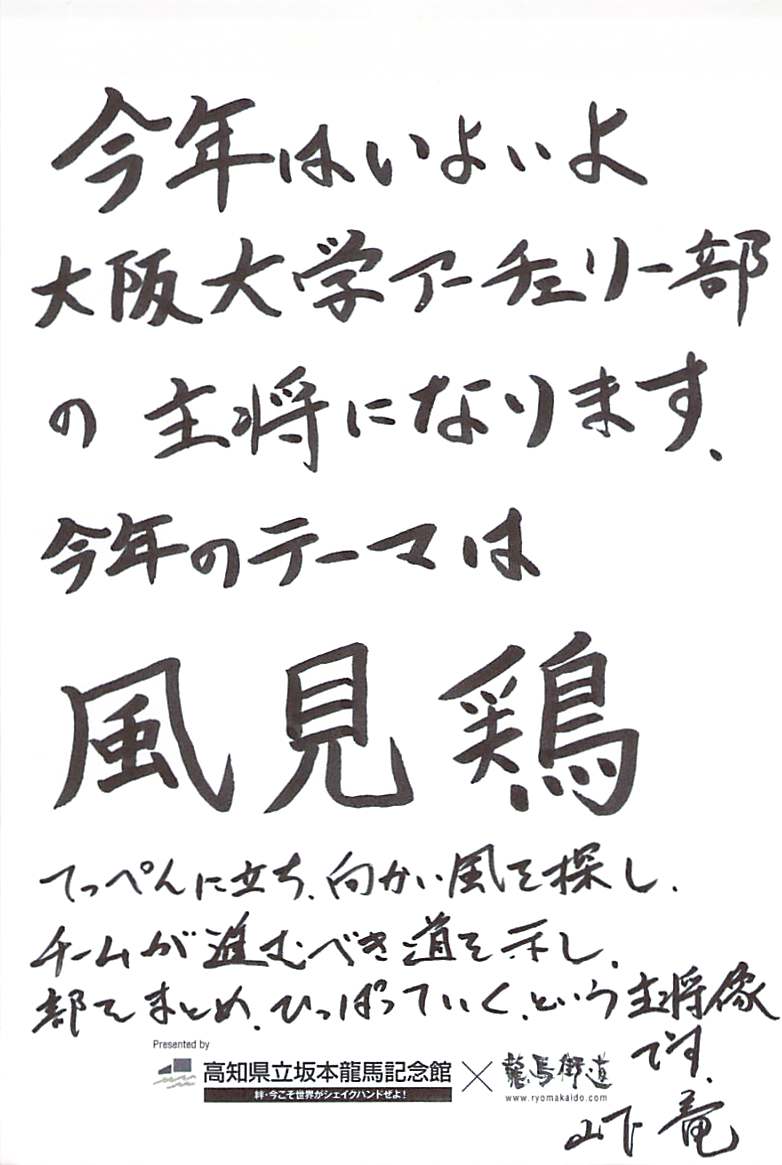 今年はいよいよ
大阪大学アーチェリー部
の主将になります.
今年のテーマは
風見鶏
てっぺんに立ち、向かい風を探し、
チームが進むべき道を示し、
部をまとめ、ひっぱっていく、という主将像
です.
山下竜
Presented by
高知県立坂本龍馬記念館×龍馬街道
絆・今こそ世界がシェイクハンドぜよ!
www.ryomakaido.com